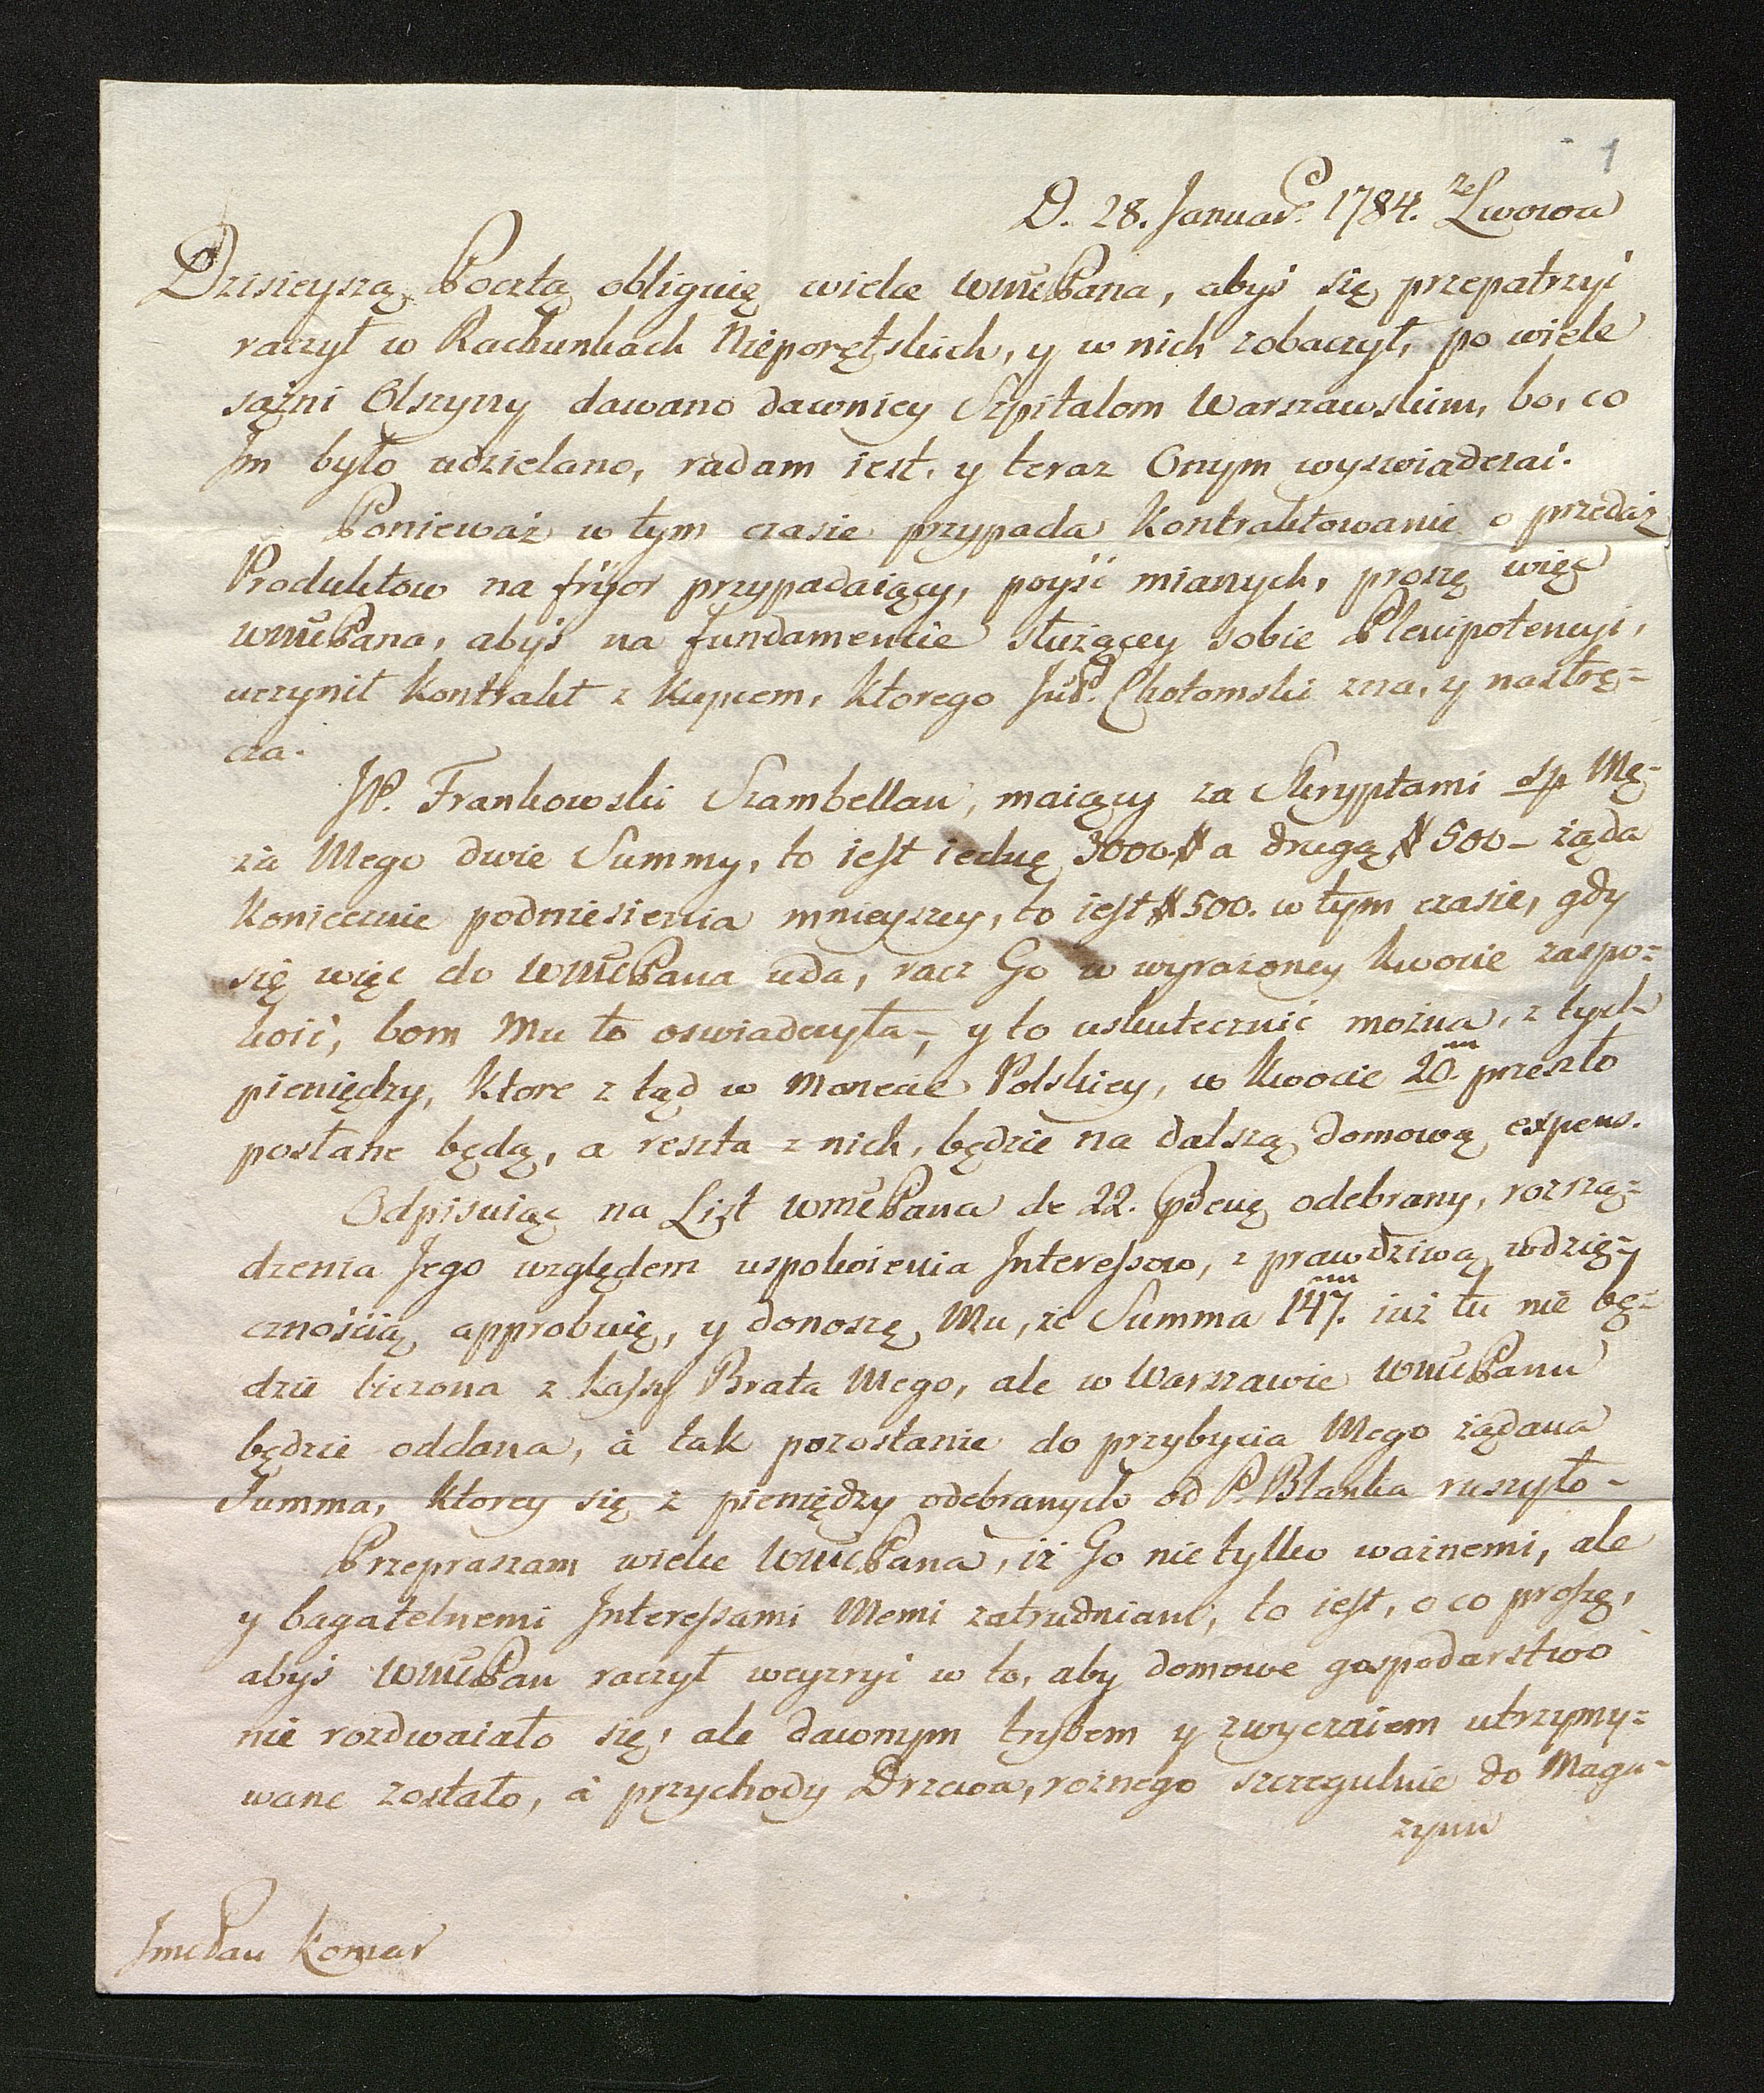 1
D. 28. Januar. 1784. ze Lwowa
Dzisieyszą Pocztą obliguię wielce WmćPana, abyś się przepatrzyć
raczył w Rachunkach Nieporętskich, y w nich zobaczył, po wiele
sążni Olszyny dawano dawniey Szpitalom Warszawskim, bo, co
Im było udzielano, radam iest, y teraz Onym wyswiadczać.
Ponieważ w tym czasie przypada Kontraktowanie o przedaż
Produktow na fryor przypadaiący, poyść mianych, proszę więc
WmćPana, abyś na fundamencie służącey sobie Plenipotencyi,
uczynił Kontrakt z Kupcem, ktorego Chotomski zna, y nastrę=
cza.
JP. Frankowski Szambellan, maiący za Skryptami sp Mę-
ża Mego dwie Summy, to iest iednę 3000 # a drugą # 500 – żąda
Koniecznie podniesienia mnieyszey, to iest # 500. w tym czasie, gdy
się więc do WmćPana uda, racz Go w wyrażoney kwocie zaspo=
koić, bom Mu to oswiadczyła –, y to uskutecznić można, z tych
pieniędzy, ktore z tąd w Monecie Polskiey, w kwocie 20.m preszło
posłane będą, a reszta z nich, będzie na dalszą domową expens.
Odpisuiąc na List WmćPana de 22. odebrany, rozrzą=
dzenia Jego względem uspokoienia Interessow, z prawdziwą wdzię=
cznością approbuię, y donoszę Mu, że Summa 147.m iuż tu nie bę=
dzie liczona z kassy Brata Mego, ale w Warszawie WmćPanu
będzie oddana, à tak pozostanie do przybycia Mego żądana
Summa, ktorey się z pieniędzy odebranych od P. Blanka ruszyło –
Przepraszam wielce WmćPana, iż Go nie tylko ważnemi, ale
y bagatelnemi Interessami Memi zatrudniam, to iest, o co proszę,
abyś WmćPan raczył weyzryć w to, aby domowe gospodarstwo
nie rozdwaiało się, ale dawnym trybem y zwyczaiem utrzymy=
wane zostało, à przychody Drzewa, rożnego szczegulnie do Maga-
zynu
JmćPan Komar